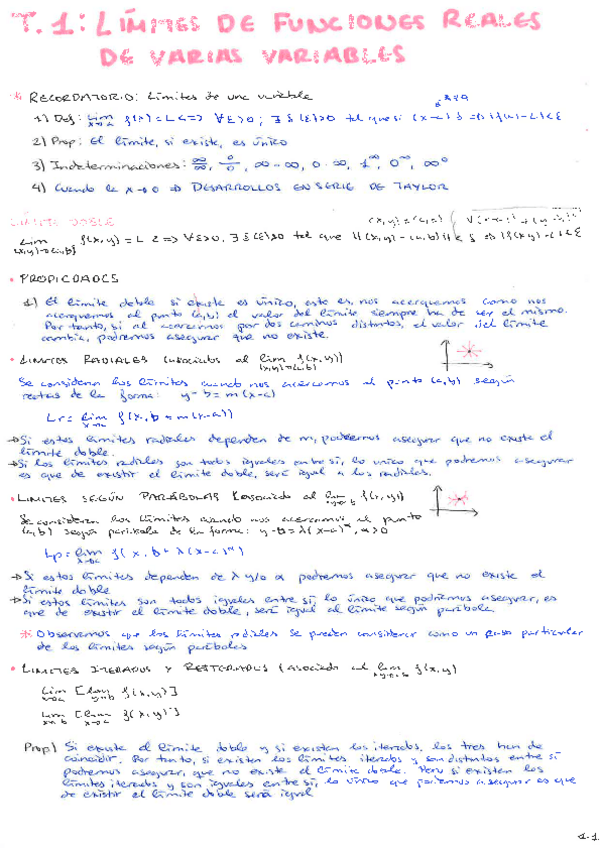 T.1: LÍMITES DE FUNCIONES REALES
DE VARIAS VARIABLES
* RECORDATORIO: Límites de una variable
1) Def: lim x→a f(x) = L <=> ∀ε>0; ∃ δ(ε)>0 tal que si
2) Prop: El límite, si existe, es único
3) Indeterminaciones: ∞/∞, 0/0, ∞-∞, 0·∞, 1^∞, 0^∞, ∞^0
4) Cuando la x→0 => DESARROLLOS EN SERIE DE TAYLOR
LÍMITE DOBLE
lim (x,y)→(a,b) f(x,y) = L <=> ∀ε>0, ∃ δ(ε)>0 tal que
• PROPIEDADES
1) El límite doble si existe es único, esto es, nos acerquemos como nos
acerquemos al punto (a,b) el valor del límite siempre ha de ser el mismo.
Por tanto, si al acercarnos por dos caminos distintos, el valor del límite
cambia, podremos asegurar que no existe.
• LÍMITES RADIALES (asociados al lim (x,y)→(a,b) f(x,y))
Se consideran los límites cuando nos acercamos al punto (a,b) según
rectas de la forma: y-b = m(x-a)
Lr = lim x→a f(x, b+m(x-a))
→ Si estos límites radiales dependen de m, podremos asegurar que no existe el
límite doble.
→ Si los límites radiales son todos iguales entre sí, lo único que podremos asegurar
es que de existir el límite doble, será igual a los radiales.
• LIMITES SEGÚN PARÁBOLAS (asociado al lim f(x,y))
Se consideran los límites cuando nos acercamos al punto
(a,b) según parábolas de la forma: y-b = λ(x-a)^α, α>0
Lp = lim x→a f(x, b+λ(x-a)^α)
→ Si estos límites dependen de λ y/o α podremos asegurar que no existe el
límite doble
→ Si estos límites son todos iguales entre sí, lo único que podríamos asegurar, es
que de existir el límite doble, será igual al límite según parábola
* Observemos que los límites radiales se pueden considerar como un caso particular
de los límites según parábolas
• LIMITES ITERADOS Y RESTRINGIDOS (asociado al lim f(x,y)
lim x→a [lim y→b f(x,y)]
lim y→b [lim x→a f(x,y)]
Prop) Si existe el límite doble y si existen los iterados, los tres han de
coincidir. Por tanto, si existen los límites iterados y son distintos entre sí
podremos asegurar, que no existe el límite doble. Pero si existen los
límites iterados y son iguales entre sí, lo único que podremos asegurar es que
de existir el límite doble será igual
1.1